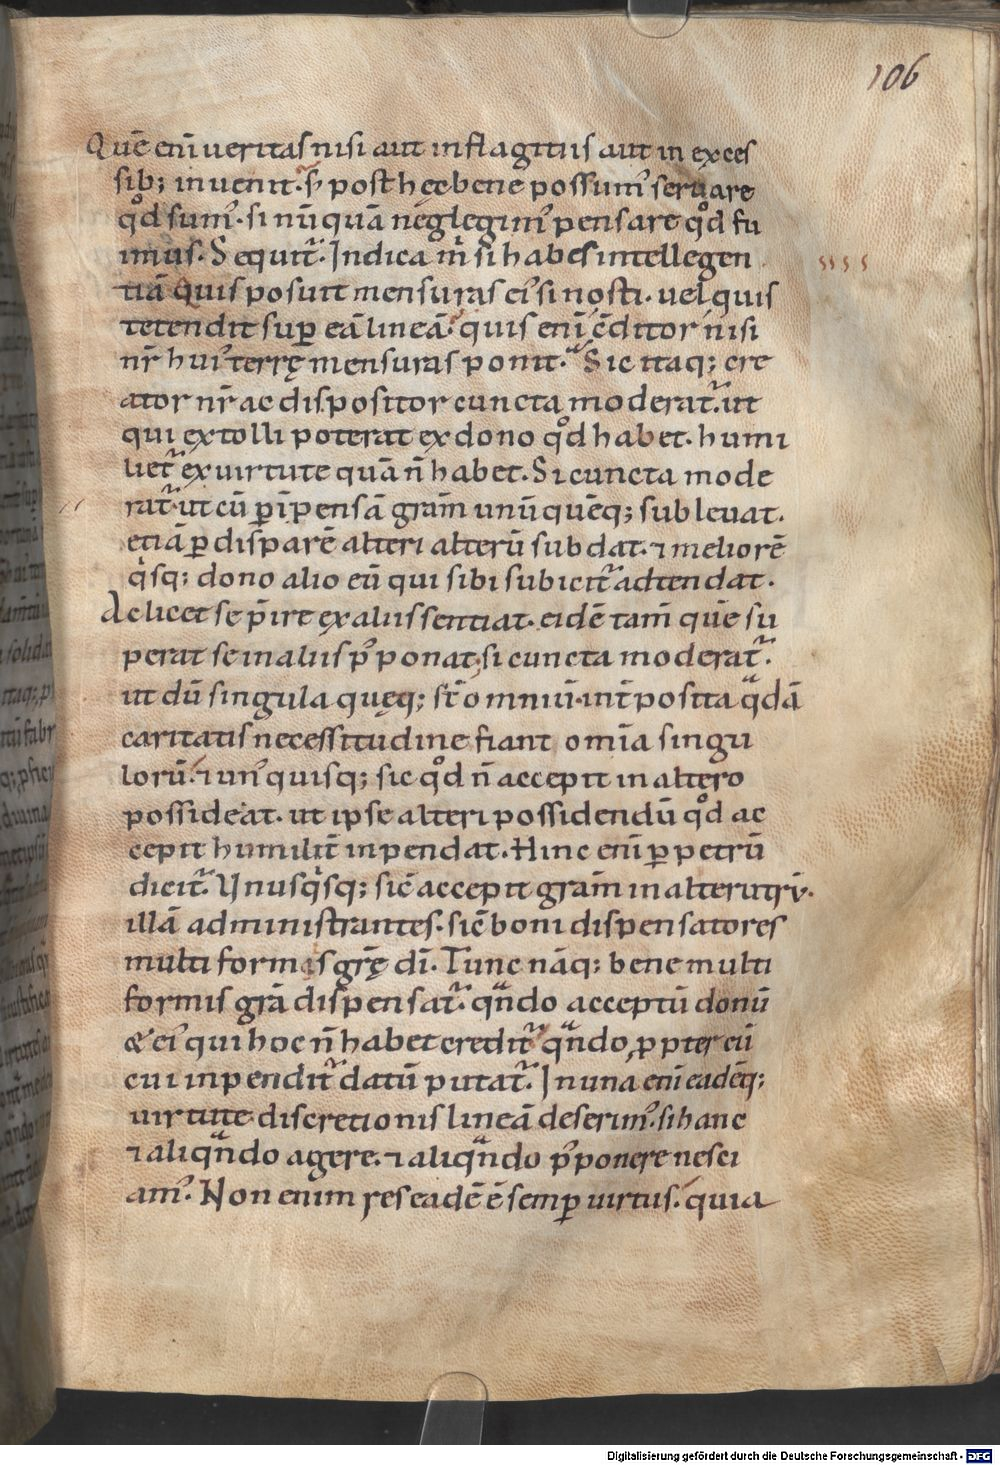 106
Quē enī ueritas nisi aut in flagitiis aut in exces
sib; inuenit. s; post hęc bene possum᾽ seruare
qd̊ sum᾽. si nū quā neglegim᾽ pensare qd̊ fu
imus. Sequit᷑. Indica m̄ si habes intellegen
tiā quis posuit mensuras ei᾽ si nosti. uel quis
tetendit sup̱ eā lineā. quis enī c̄ditor nisi
nr̄ hui᾽ terrę mensuras ponit. Sic itaq; cre
ator nr̄ ac dispositor cuncta moderat᷑. ut
qui extolli poterat ex dono qd̊ habet. humi
liet᷑ ex uirtute quā n̄ habet. Si cuncta mode
rat᷑. ut cū p̱ īpensā gram̄ unū quēq; subleuat.
etiā p̱ disparē alteri alterū subdat. ⁊ meliorē
qͥsq; dono alio eū qui sibi subicit᷑ adtendat.
Ac licet se p̄ire ex aliis sentiat. eidē tam̄ quē su
perat se in aliis p᾽ponat. si cuncta moderat᷑.
ut dū singula quęq; st̄ omniū. int̄posita qᷓdā
caritatis necessitudine fiant omīa singu
lorū. ⁊ un᾽quisq; sic qd̊ n̄ accepit in altero
possideat. ut ipse alteri possidendū qd̊ ac
cepit humilit̄ inpendat. Hinc enī p̱ petrū
dicit᷑. Unusqͥsq; sic̄ accepit gram̄ in alterutrū.
illā administrantes. sic̄ boni dispensatores
multiformis grę̄ dī. Tunc nāq; bene multi
formis grā dispensat᷑. qᷓndo acceptū donū
& ei᾽ qui hoc n̄ habet credit᷑ qᷓndo ꝓpter eū
cui inpendit᷑ datū putat᷑. In una enī eadēq;
uirtute discretionis lineā deserim᾽. si hanc
⁊ aliqᷓndo agere. ⁊ aliqᷓndo p᾽ponere nesci
am᾽. Non enim res eadē ē semp̱ uirtus. quia
Digitalisierung gefördert durch die Deutsche Forschungsgemeinschaft - DFG